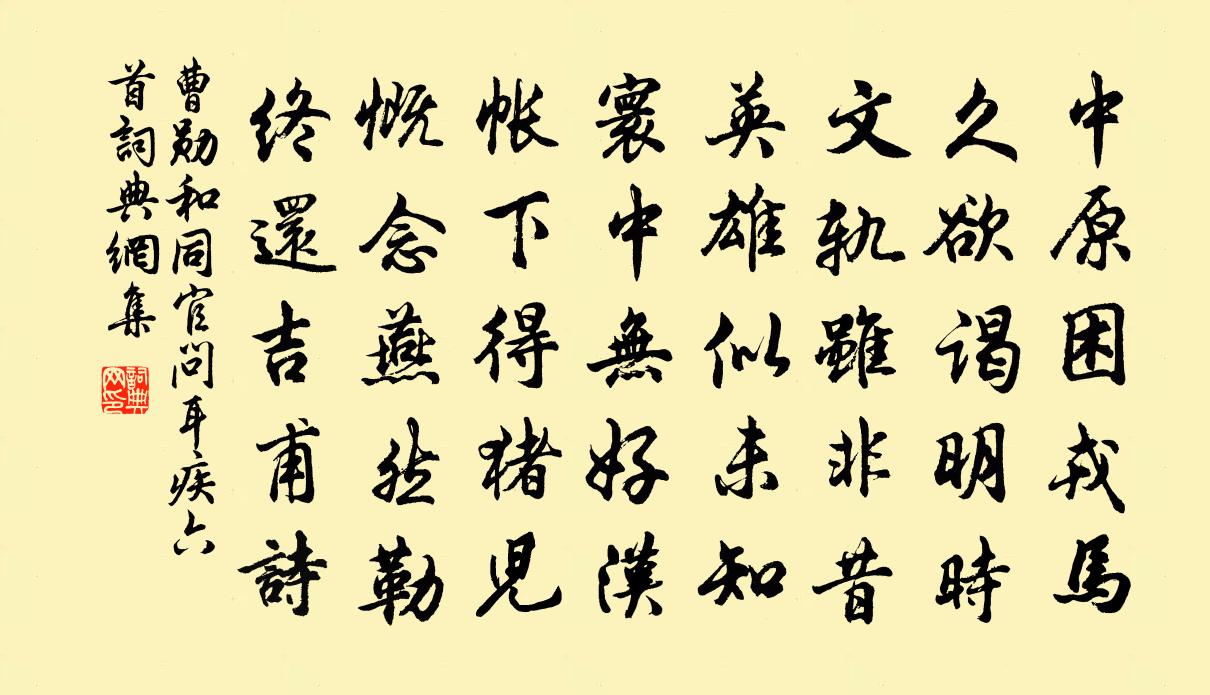 中原困戎馬
久欲谒明時
文軌雖非昔
英雄似未知
寰中無好漢
帐下得猪児
慨念燕然勒
终還吉甫詩
曹勛和同官问耳疾六
首詞典網集
詞典網印